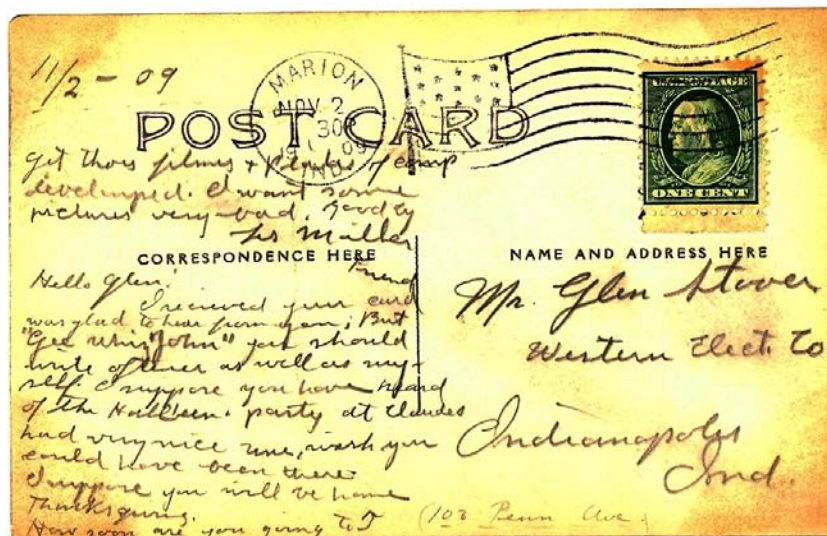 11/2 - 09
MARION
NOV 2
30P
1909
IND.
POST CARD
get thoes filmes + plates of camp
developed. I want some
pictures very-bad. Good by
Les Miller
Friend
CORRESPONDENCE HERE
Hello Glen!
I recieved your card
was glad to hear from you; But
"Gee Whiz John" you should
write oftener as well as my-
self. I suppose you have heard
of the party at Claudes
had very nice time, wish you
could have been there
I suppose you will be home
Thanksgiving.
How soon are you going to
NAME AND ADDRESS HERE
Mr. Glen Stover
Western Elect. Co
Indianapolis
Ind.
(102 Penn Ave.)
ONE CENT